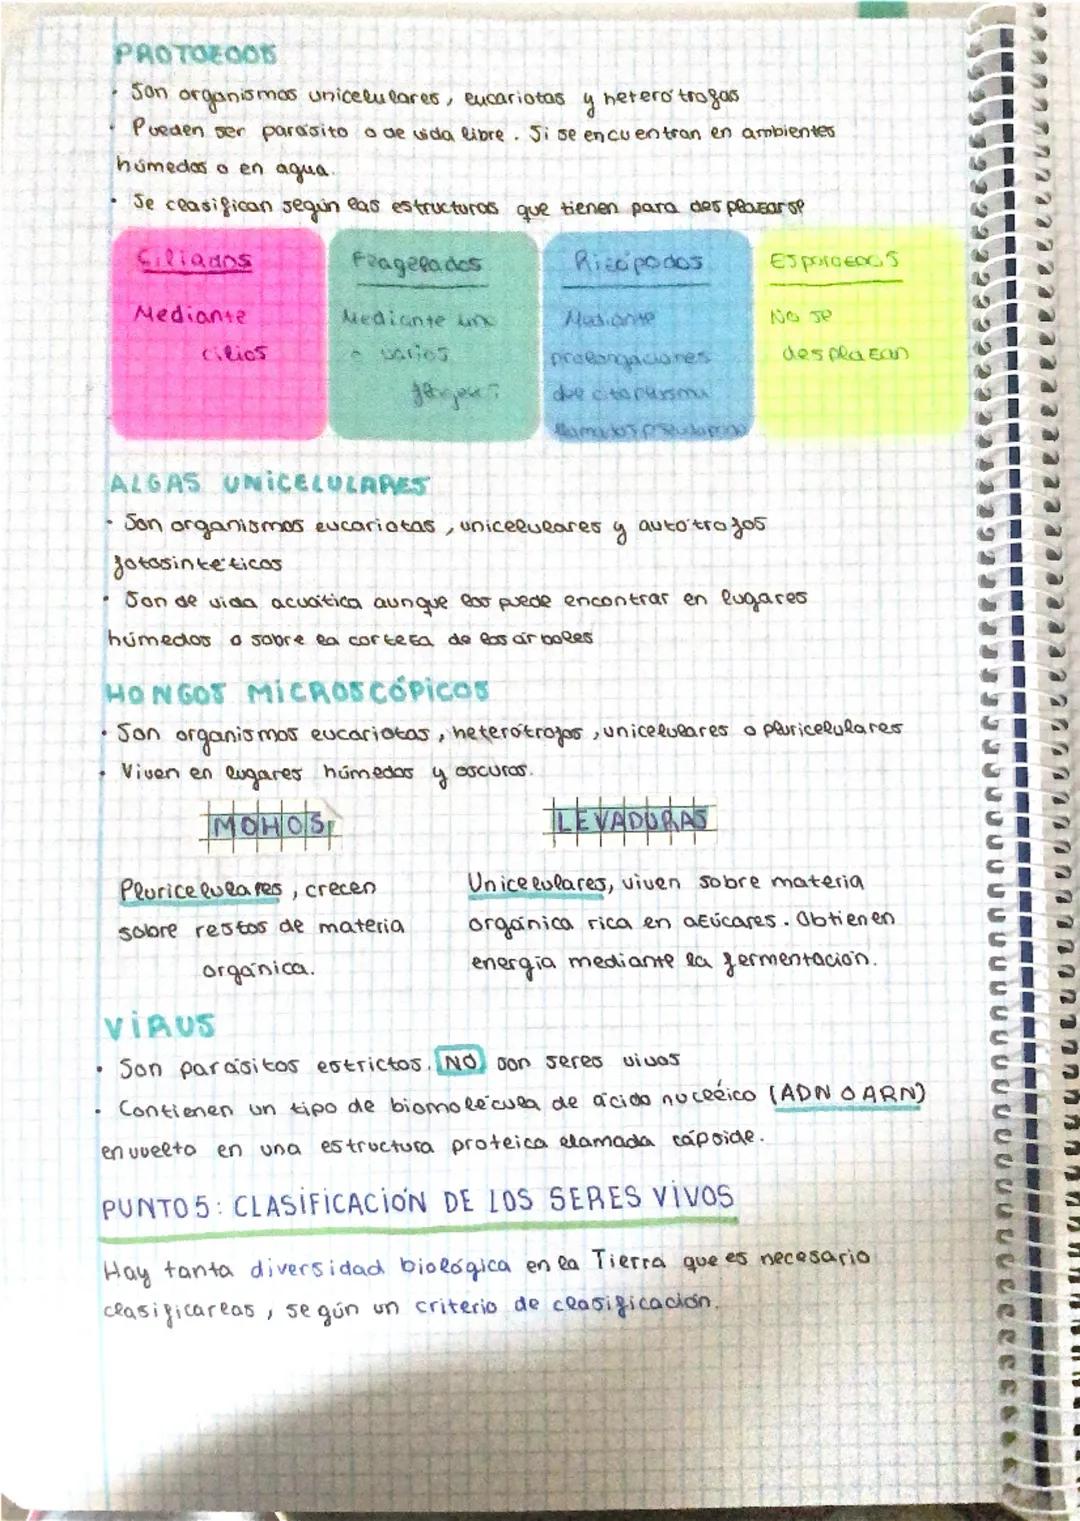 PROTOZOOS
· Son organismos unicelulares, eucariotas y heterótrofos
· Pueden ser parásito o de vida libre. Si se encuentran en ambientes
húmedos o en agua.
· Se clasifican según las estructuras que tienen para desplazarse
Ciliados
Mediante
cilios
Flagelados
Mediante uno
o varios
Rizópodos
Mediante
prolongaciones
del citoplasma
llamados pseudópodos
Esporozoos
No se
desplazan
ALGAS UNICELULARES
· Son organismos eucariotas, unicelulares y autótrofos
fotosintéticos
· Son de vida acuática aunque los puede encontrar en lugares
húmedos o sobre la corteza de los árboles
HONGOS MICROSCÓPICOS
· Son organismos eucariotas, heterótrofos, unicelulares o pluricelulares
· Viven en lugares húmedos y oscuros.
MOHOS
Pluricelulares, crecen
sobre restos de materia
orgánica.
LEVADURAS
Unicelulares, viven sobre materia
orgánica rica en azúcares. Obtienen
energía mediante la fermentación.
VIRUS
· Son parásitos estrictos. NO son seres vivos
· Contienen un tipo de biomolécula de ácido nucléico (ADN O ARN)
envuelto en una estructura proteica llamada cápside.
PUNTO 5: CLASIFICACIÓN DE LOS SERES VIVOS
Hay tanta diversidad biológica en la Tierra que es necesario
clasificarlas, según un criterio de clasificación.